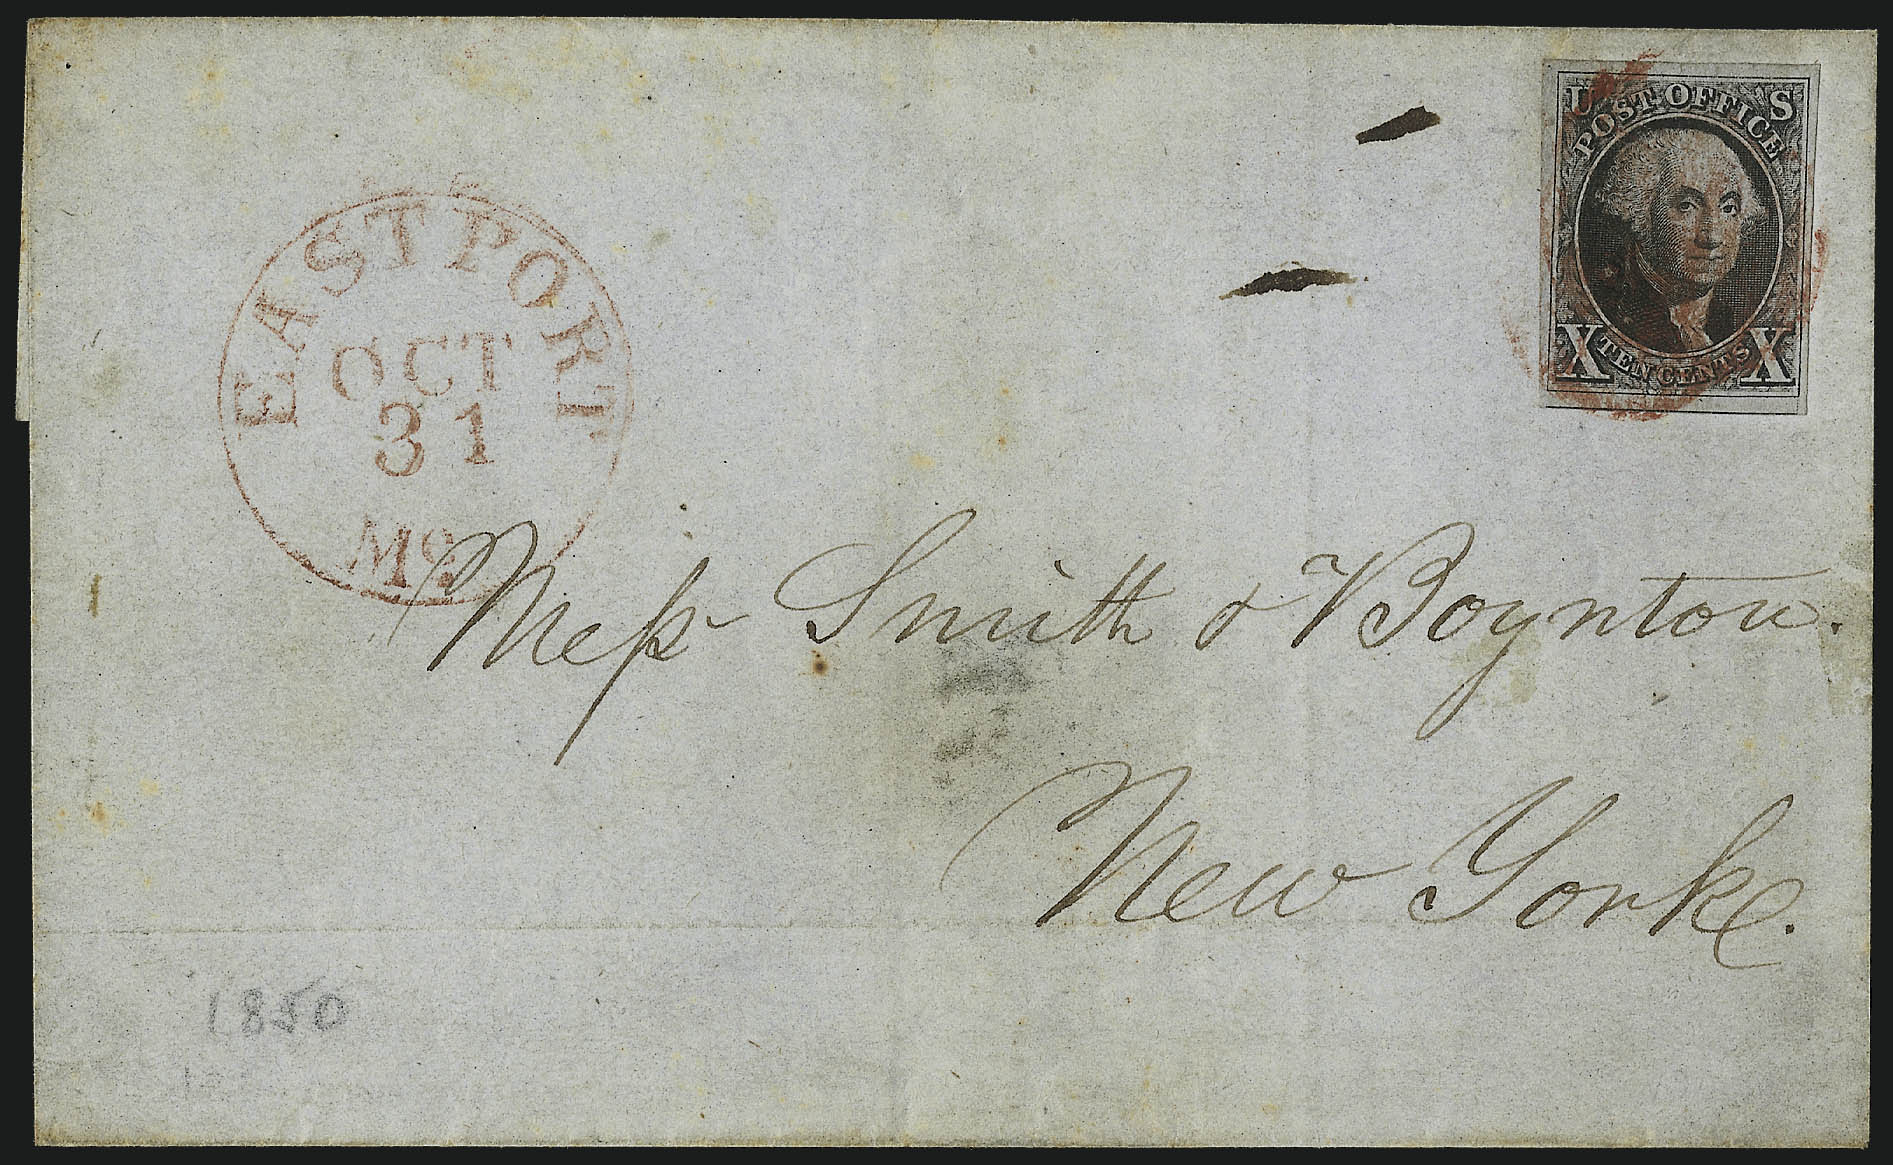 U S
POST OFFICE
X TEN CENTS X
EASTPORT
OCT
31
Me
Mess Smith & Boynton.
New Yorke.
1850